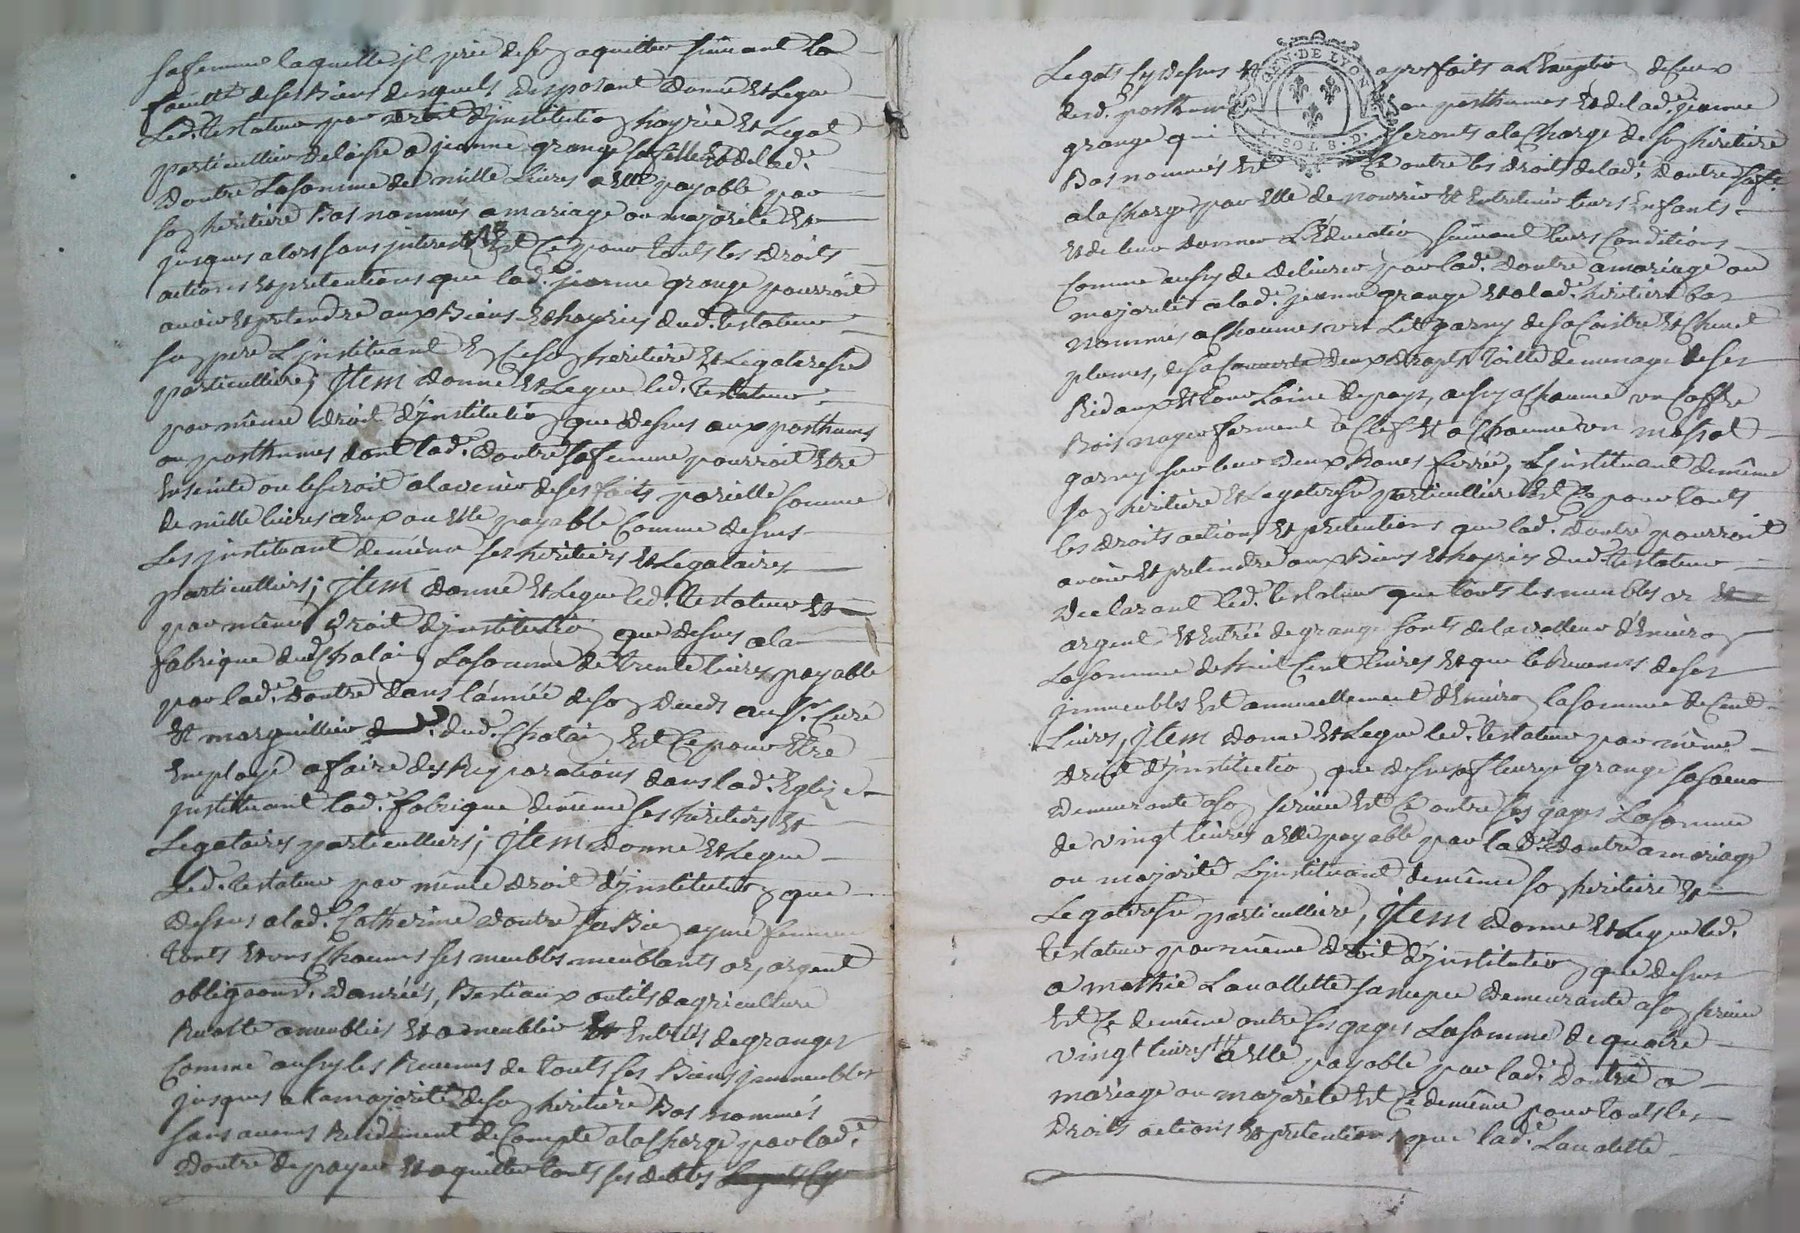 sa femme laquelle il prie de s'en aquitter suivant la
faculté de ses Biens desquels disposant donne Et Legue
Led. testateur par droit d'jnstitution hoyrie Et Legat
particullier delaisse a jeanne grange sa fille Et de lad.e
Doutre La somme de mille Livres a Elle payable par
son heritiere Bas nommée a mariage ou majorité Et
jusques alors sans jnterest Et Ce pour touts les droits
actions Et pretentions que lad.e jeanne grange pourroit
avoir Et pretendre aux Biens Et hoyries dud. testateur
son pere L'jnstituant En Ce son heritiere Et Legateresse
particulliere; Jtem donne Et Legue led. testateur
par même droit d'jnstitution que dessus aux posthumes
ou posthumes dont lad.e Doutre sa femme pourroit Etre
Enceinte ou le seroit a lavenir de ses faits parielle somme
de mille livres a Eux ou Elle payable Comme dessus
Les jnstituant de même ses heritiers Et Legataires
particulliers; Jtem donne Et Legue led. testateur
par même droit d'jnstitution que dessus a la
fabrique dud. Chalain La somme de trente livres payable
par lad.e Doutre dans l'année de son Deceds au Sr. Curé
Et marguillier dud. Chalain Et Ce pour Etre
Employé a faire des Reparations dans lad.e Eglise
jnstituant lad.e fabrique de même ses heritiers Et
Legataires particulliers; Jtem donne Et Legue
Led. testateur par même droit d'jnstitution que
dessus a lad.e Catherine Doutre sa Bien aymé femme
touts Et uns Chacuns ses meubles meublants or, argent
obligaons. Danrées, Bestiaux outils dagriculture
Recolte ameublies Et a meublir Et Entrées de granges
Comme aussy les Revenus de touts ses Biens jmmeubles
jusques a la majorité de son heritiere Bas nommés
sans aucuns Rendement de Compte a la Charge par lad.e
Doutre de payer Et aquitter touts ses debtes
Legats Cy dessus Et apres faits a L'Exeption de Ceux
desd. posthum ou posthumes Et de lad.e jeanne
grange qui seronts a la Charge de son heritiere
Bas nommés Et Ce outre les droits de lad.e Doutre
a la Charge par Elle de nourrir Et Entretenir leurs Enfants
Et de leur donner L'Education suivant leurs Conditions
Comme aussy de delivrer par lad.e Doutre a mariage ou
majorité a lad.e jeanne grange Et a lad.e heritiere bas
nommés a Chacunes un Lit garny de sa Coitre Et Chevet
plumes, de sa Couverte deux draps toille de menage de ses
Ridaux Et tour Laine de pays, aussy a Chacune un Coffre
Bois noyer fermant a Clef Et a Chacune un
garny sur leur deux Roues ferrée, L'jnstituant de même
son heritiere Et Legateresse particulliere Et Ce pour touts
les droits actions Et pretentions que lad.e Doutre pourroit
avoir Et pretendre aux Biens Et hoyries dud. testateur
Declarant led. testateur que touts les meubles or
argent Et Entrée de grange sonts de la valleur d'Environ
La somme de huit Cent livres Et que le Revenus de ses
jmmeubles Est annuellement d'Environ la somme de Cent
Livres, Jtem donne Et Legue led. testateur par même
droit d'jnstitution que dessus a fleurye grange sa soeur
demeurante a son service Et Ce outre ses gages La somme
de vingt livres a Elle payable par lad.e Doutre a mariage
ou majorité L'jnstituant de même son heritiere Et
Legateresse particulliere, Jtem donne Et Legue led.
testateur par même droit d'jnstitution que dessus
a mathie Lavallette sa niepce demeurante a son service
Et Ce de même outre ses gages La somme de quatre
vingt livres a Elle payable par lad.e Doutre a
mariage ou majorité Et Ce de même pour touts les
Droits actions Et pretentions que lad.e Lavalette
GEN. DE LYON
SOLS